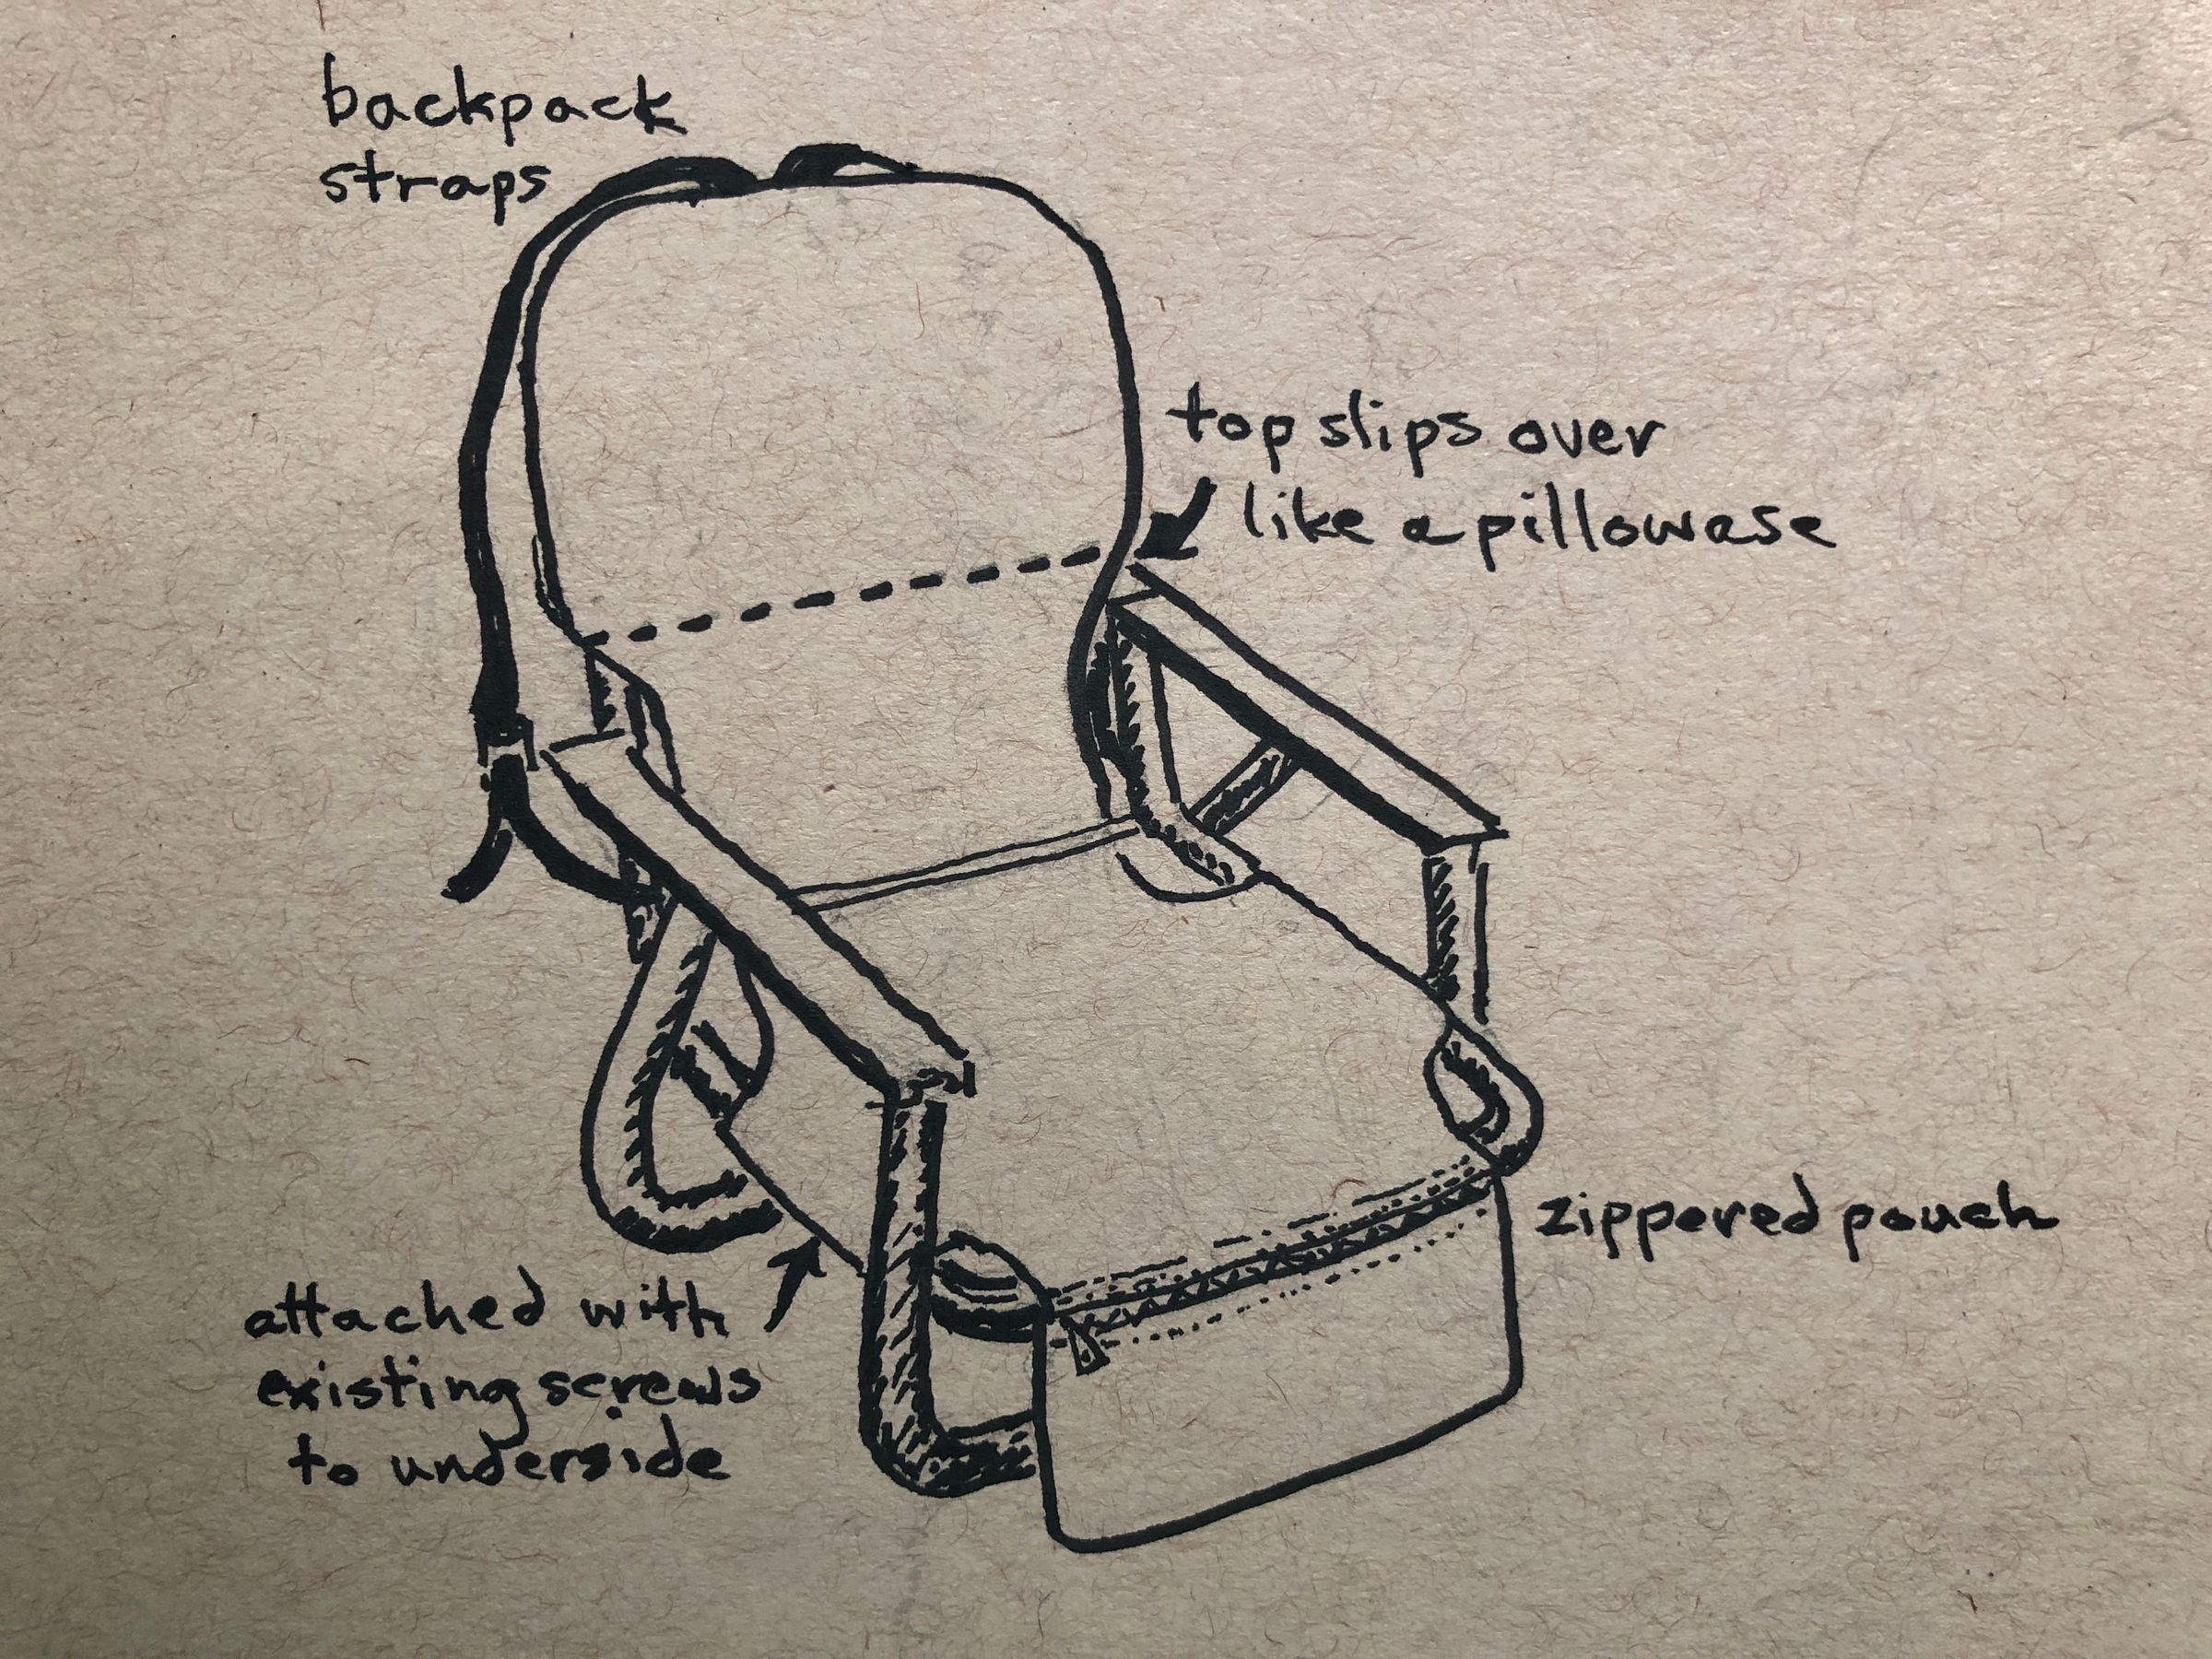 backpack
straps
top slips over
like a pillowase
zippered pouch
attached with
existing screws
to underside